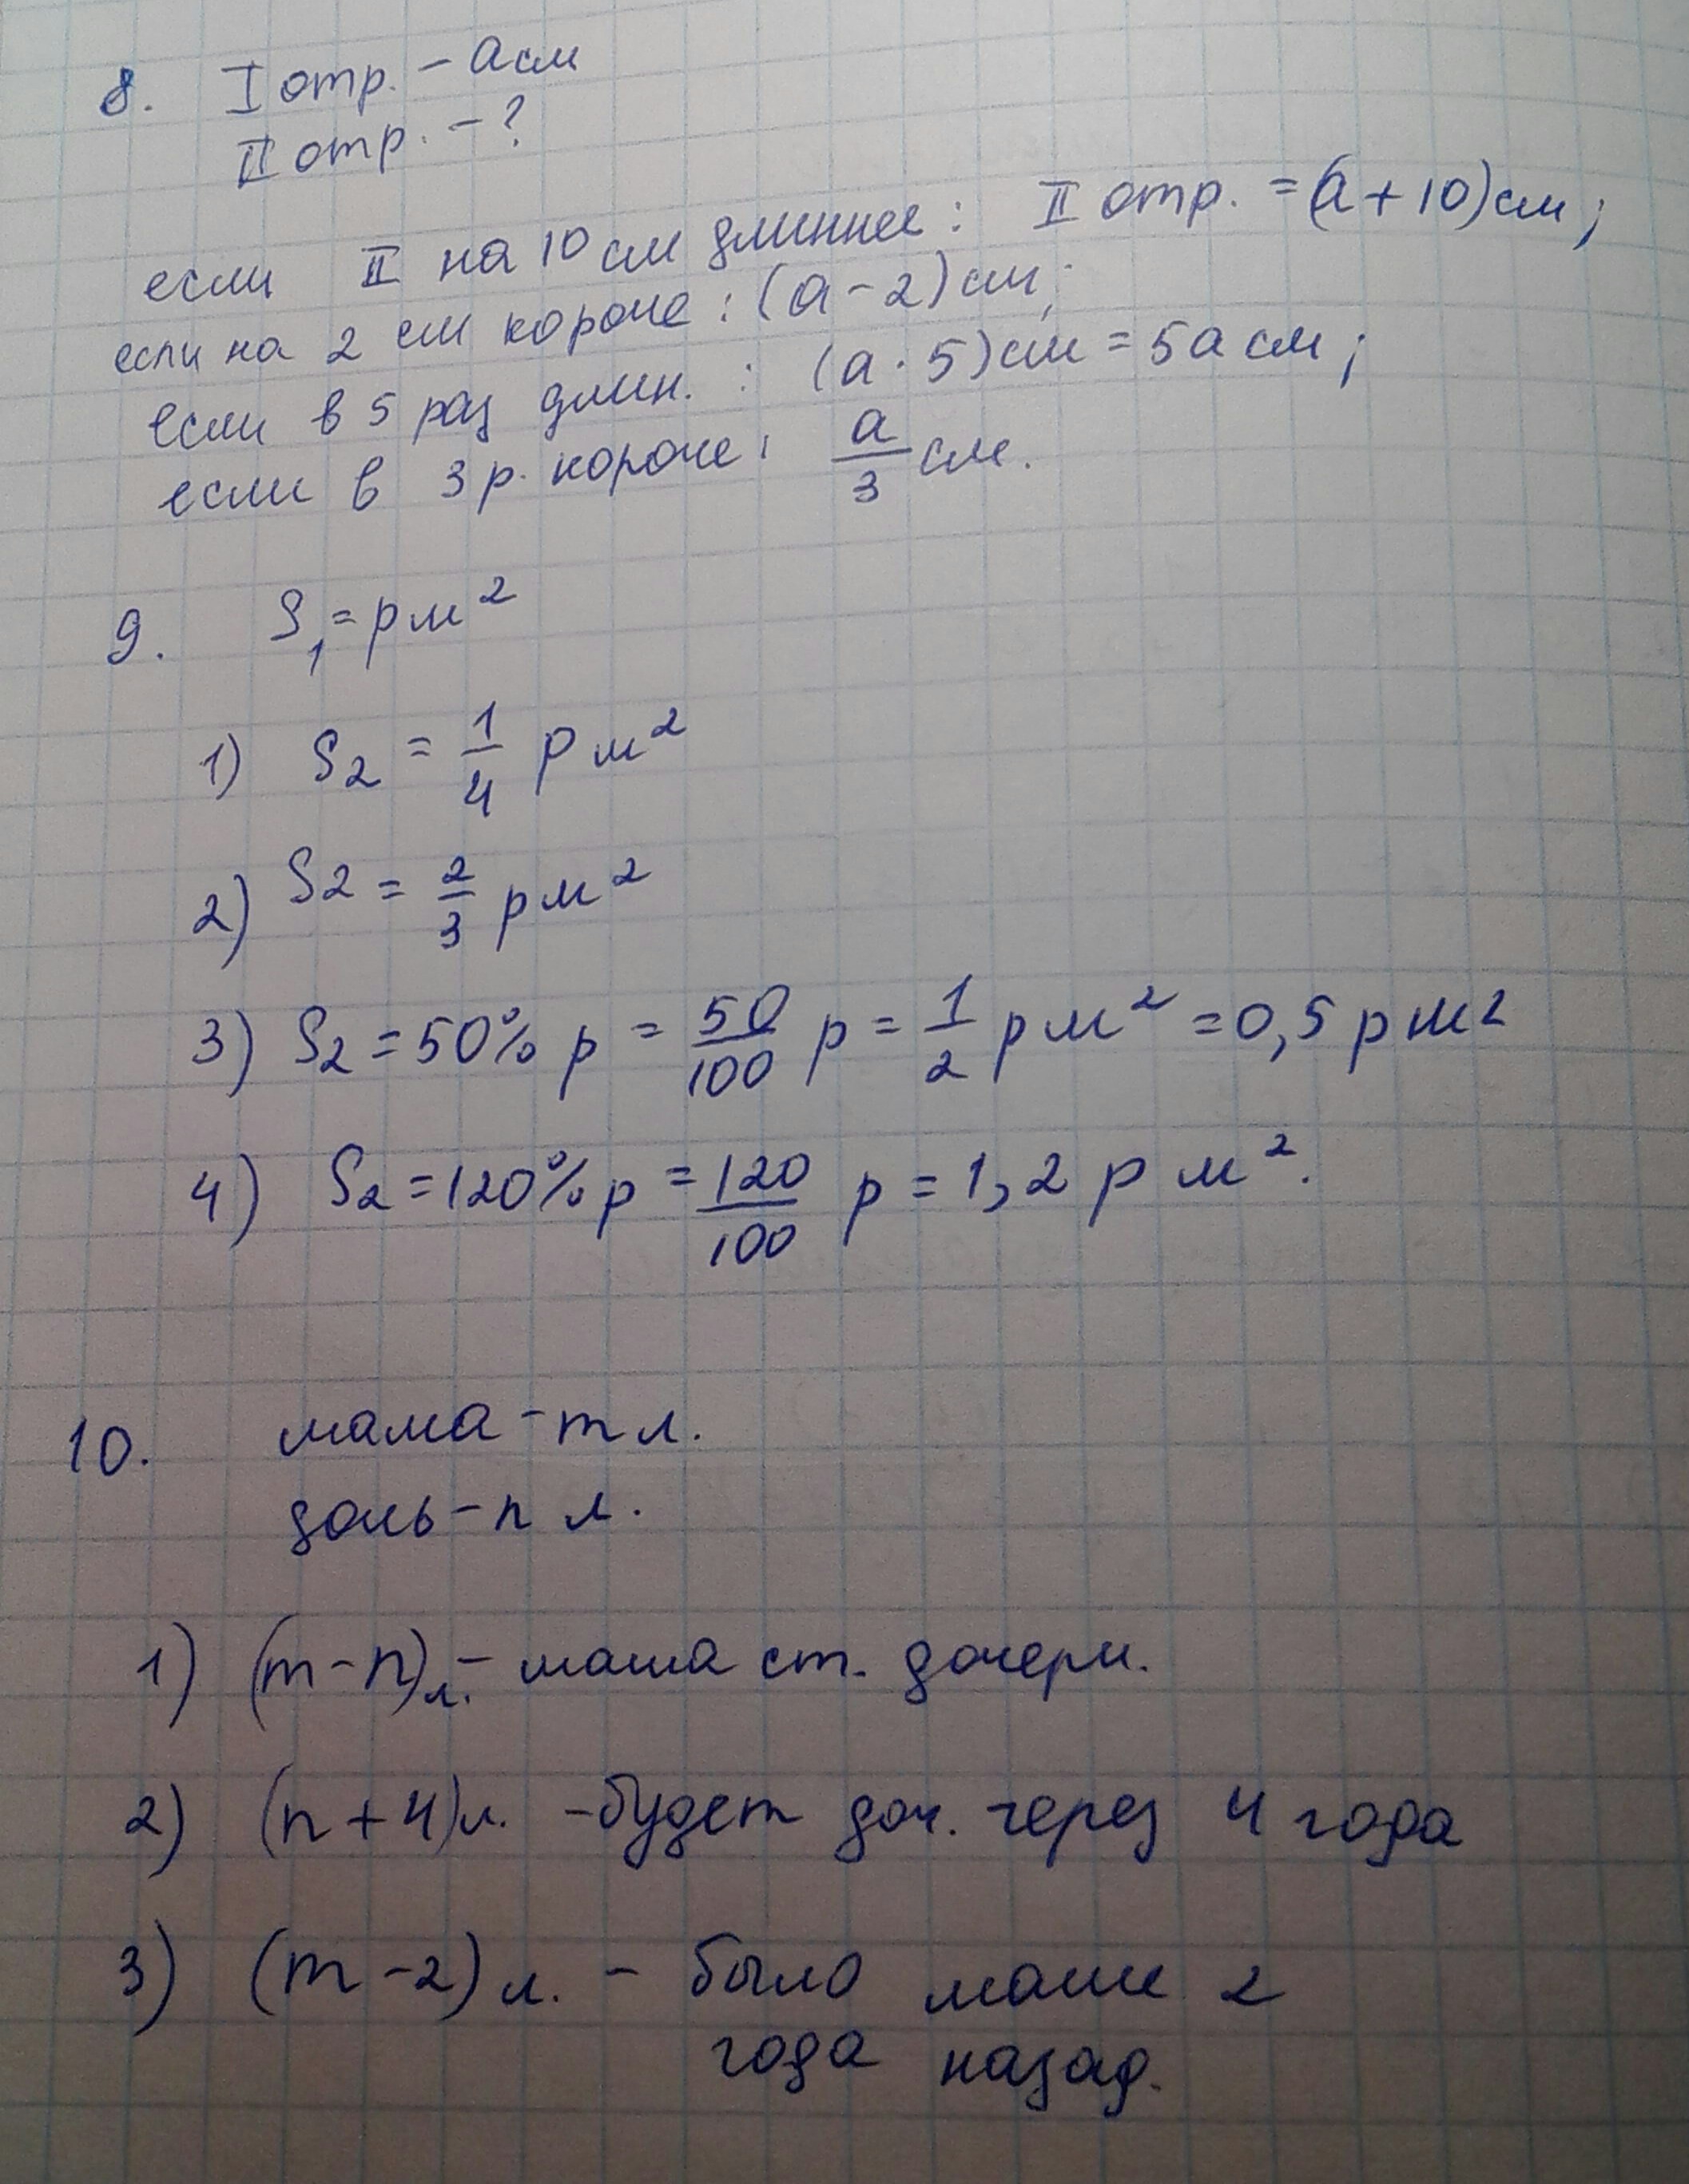 8. I отр. – a см
II отр. – ?
если II на 10 см длиннее: II отр. = (a + 10) см;
если на 2 см короче: (a - 2) см;
если в 5 раз длин. : (a · 5) см = 5a см;
если в 3 р. короче: a/3 см.
9. S₁ = p м²
1) S₂ = 1/4 p м²
2) S2 = 2/3 p м²
3) S₂ = 50% p = 50/100 p = 1/2 p м² = 0,5 p м2
4) S₂ = 120% p = 120/100 p = 1,2 p м².
10. мама – m л.
дочь – n л.
1) (m - n) л. – мама ст. дочери.
2) (n + 4) л. – будет доч. через 4 года
3) (m - 2) л. – было маме 2
года назад.